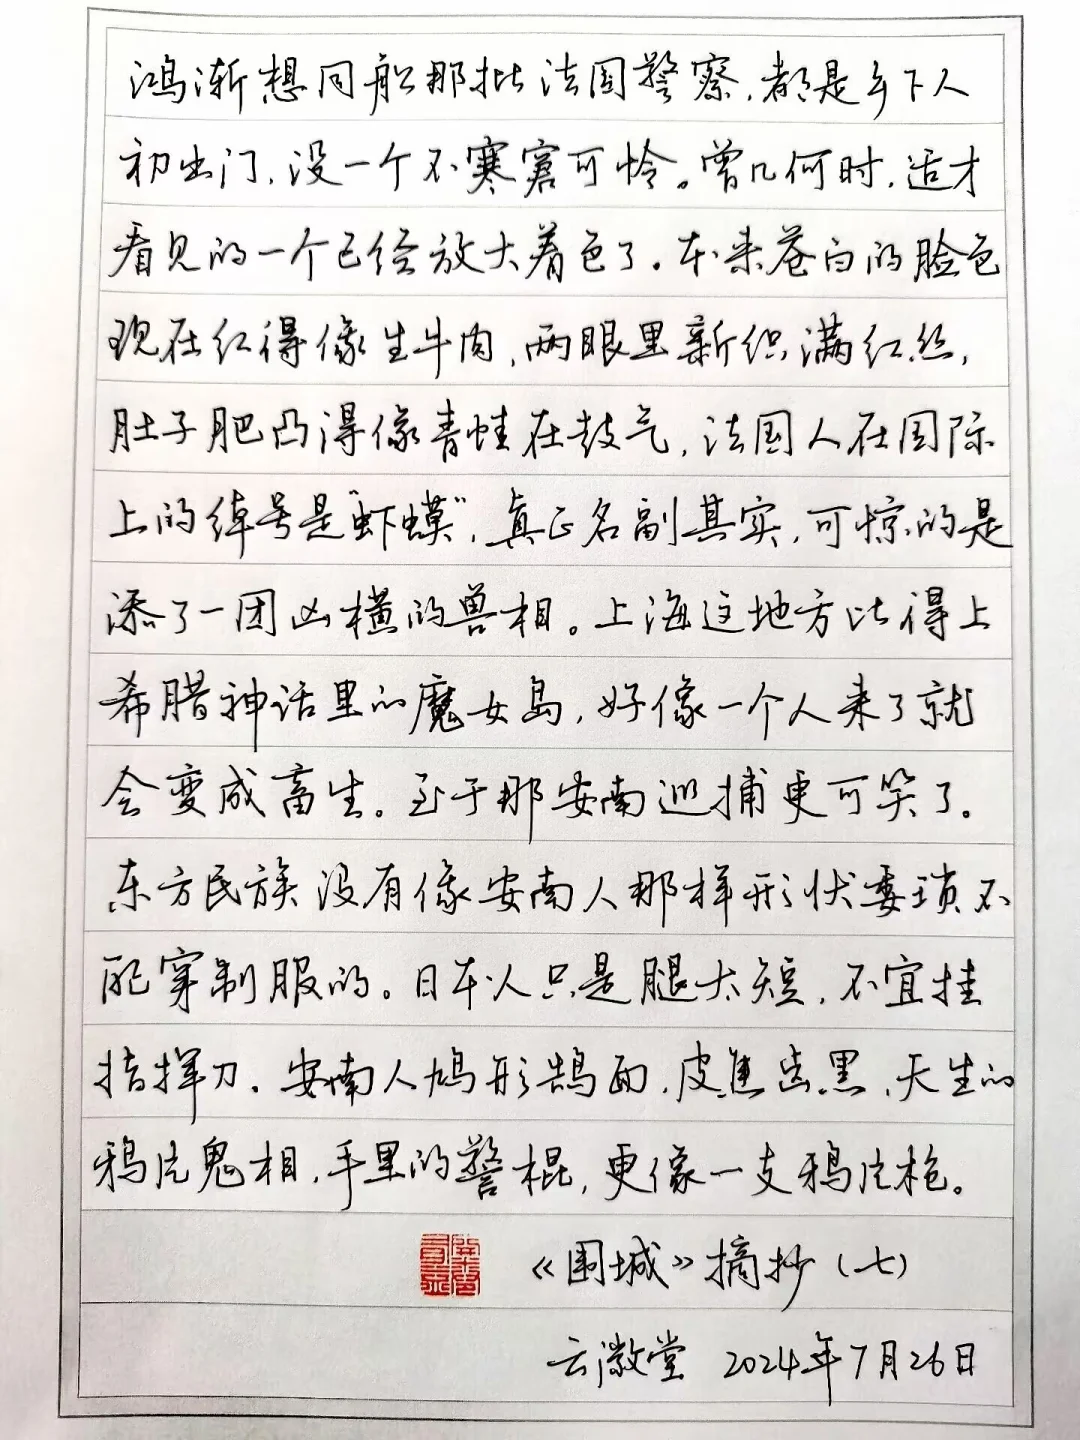 鸿渐想同船那批法国警察，都是乡下人
初出门，没一个不寒窘可怜。曾几何时，适才
看见的一个已经放大着色了。本来苍白的脸色
现在红得像生牛肉，两眼里新织满红丝，
肚子肥凸得像青蛙在鼓气，法国人在国际
上的绰号是“虾蟆”，真正名副其实，可惊的是
添了一团凶横的兽相。上海这地方比得上
希腊神话里的魔女岛，好像一个人来了就
会变成畜生。至于那安南巡捕更可笑了。
东方民族没有像安南人那样形状委琐不
配穿制服的。日本人只是腿太短，不宜挂
指挥刀。安南人鸠形鹄面，皮焦齿黑，天生的
鸦片鬼相，手里的警棍，更像一支鸦片枪。
《围城》摘抄（七）
云徽堂 2024年7月26日